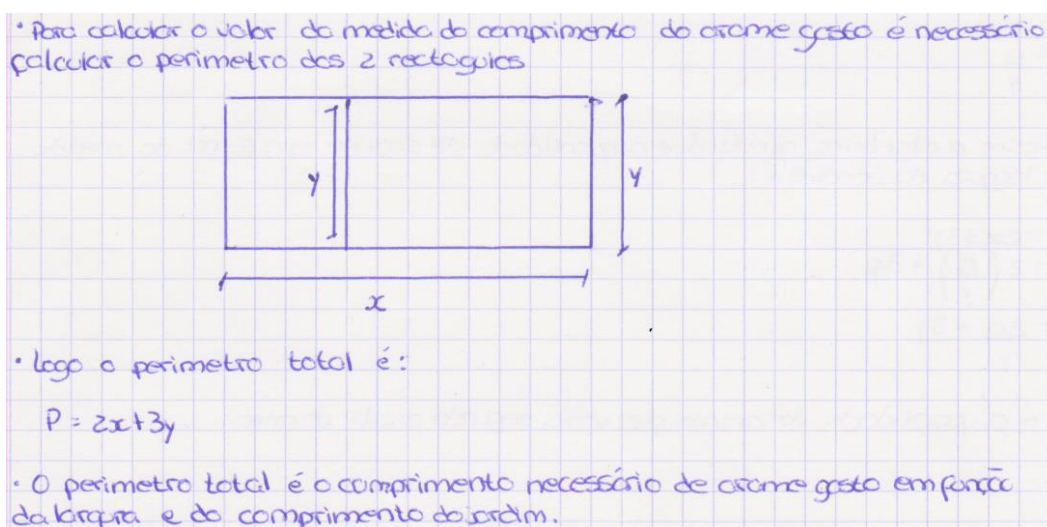 • Para calcular o valor da medida do comprimento do arame gasto é necessário
calcular o perimetro dos 2 rectagulos
y
y
x
• Logo o perimetro total é:
P = 2x+3y
• O perimetro total é o comprimento necessário de arame gasto em função
da largura e do comprimento do jardim.